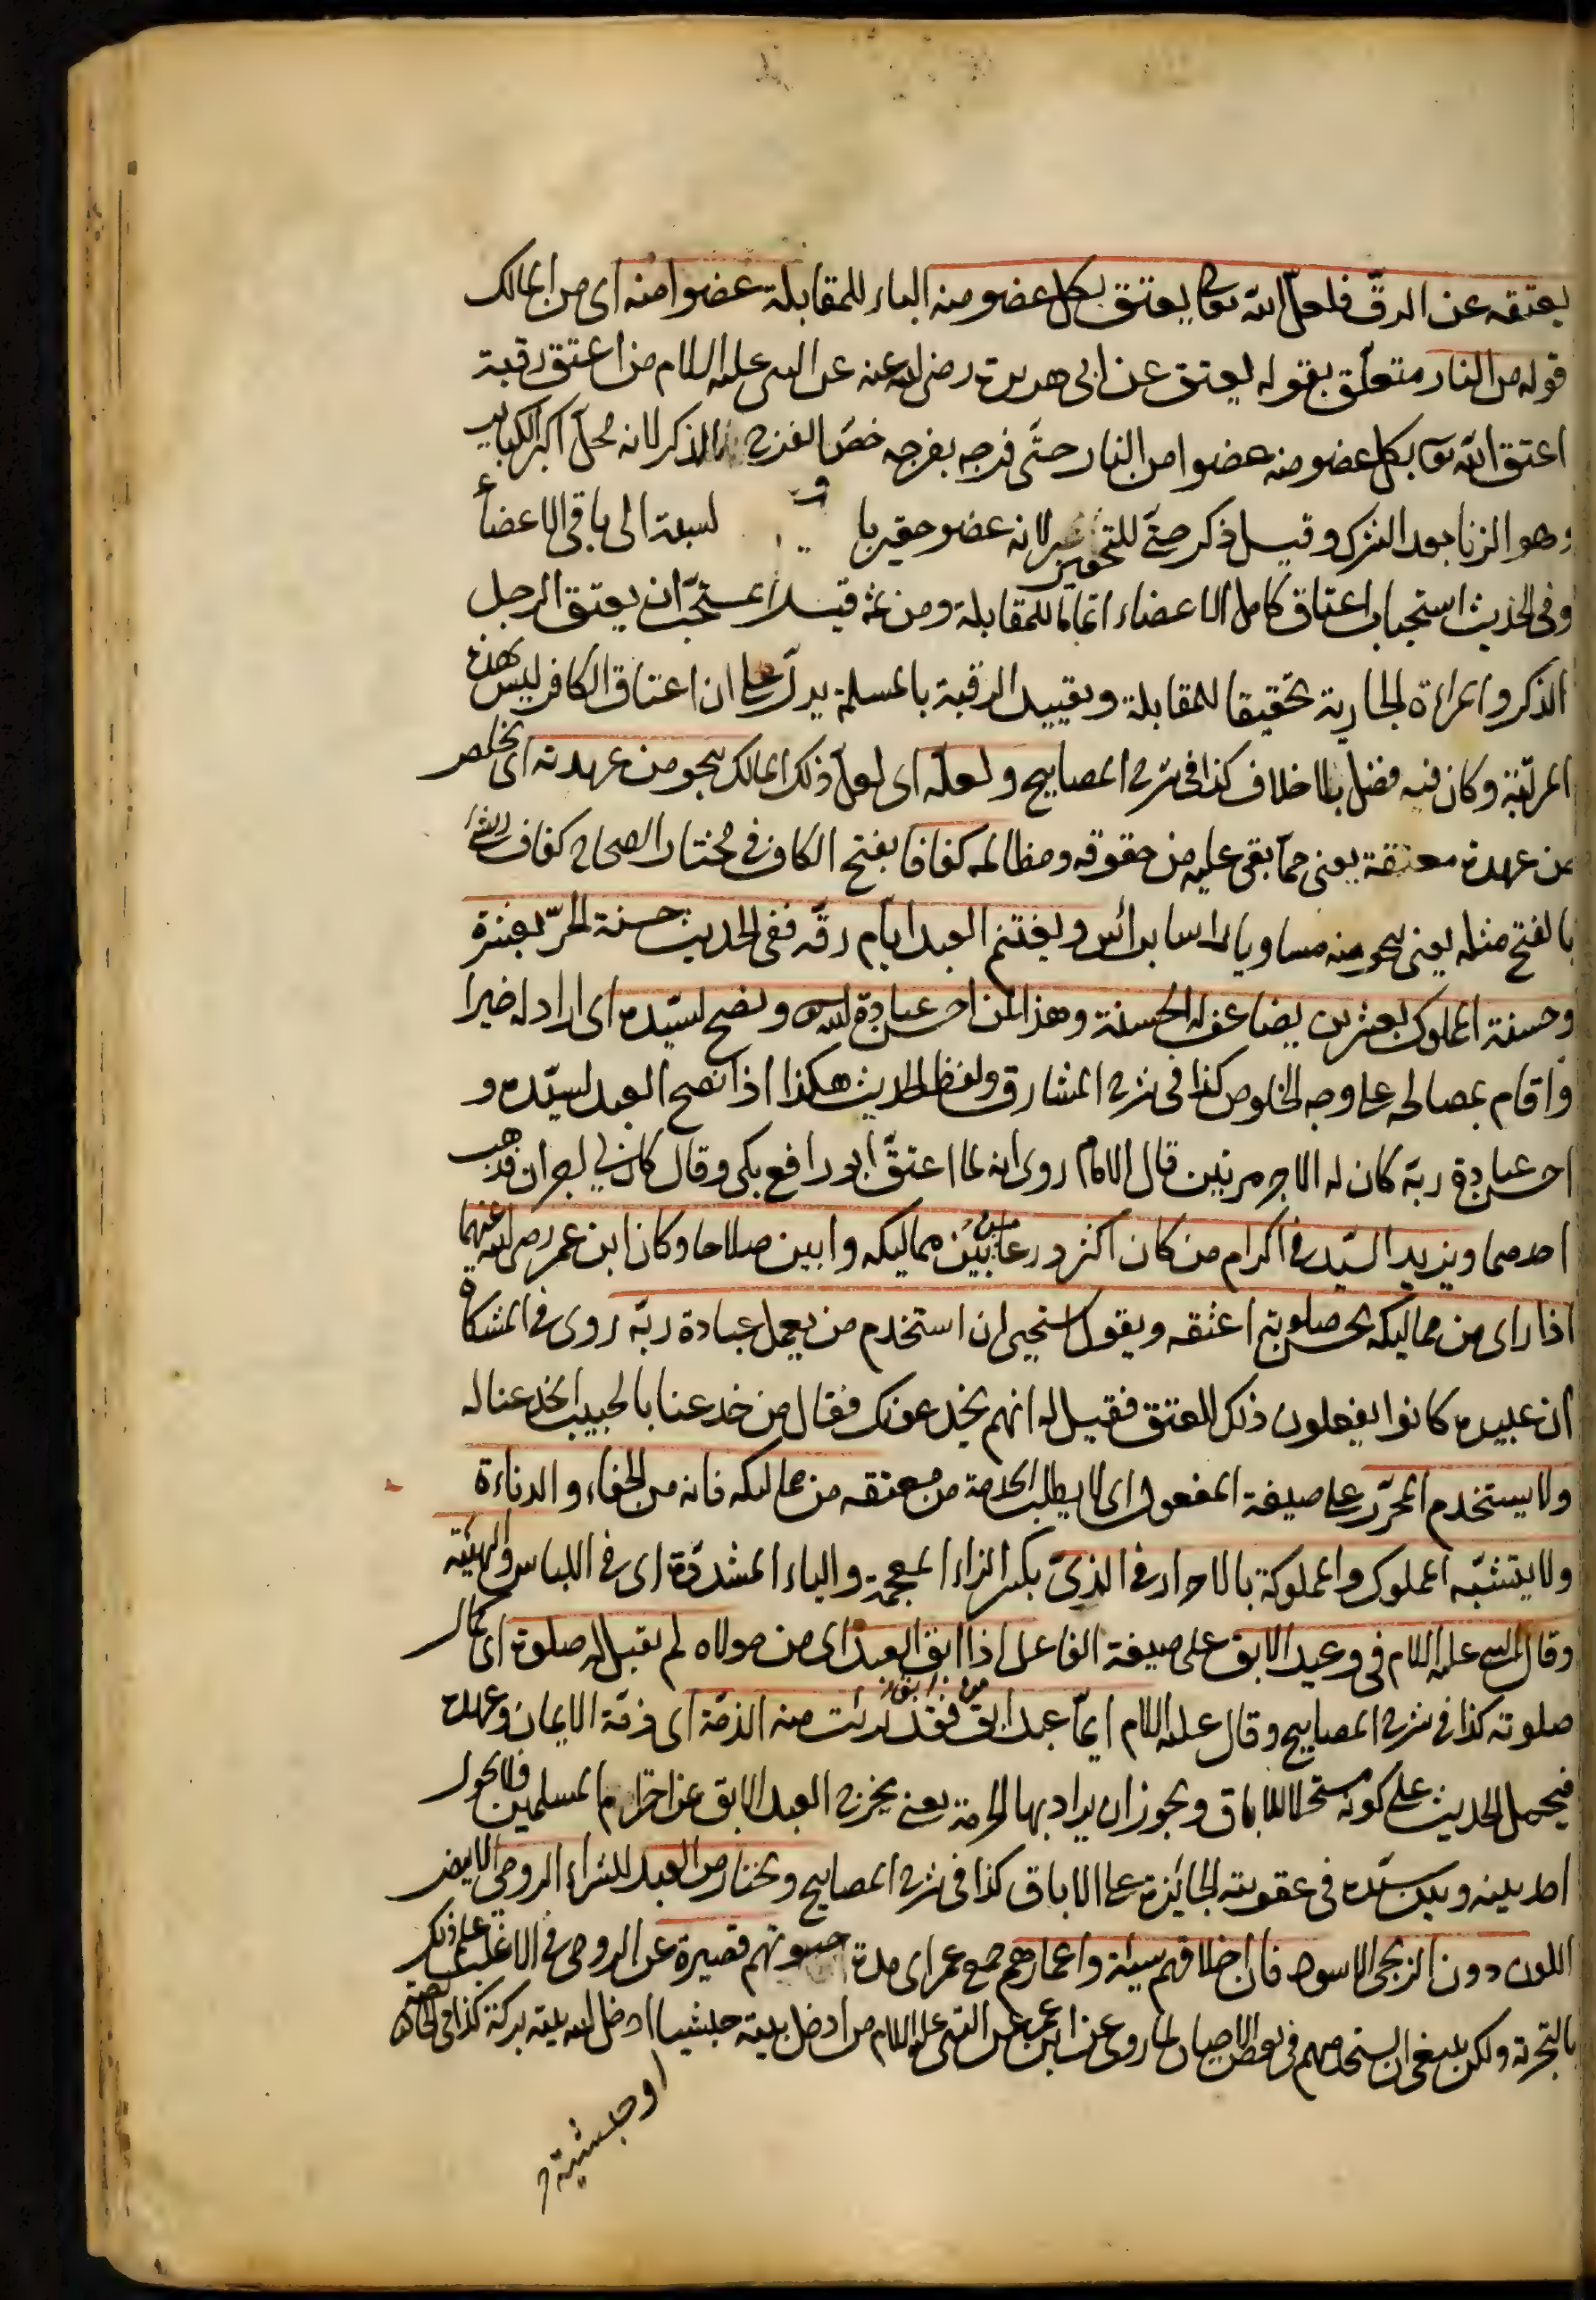 يعتقه عن الرقّ فلعلّ الله تعالى يعتق بكل عضو منه الباء للمقابلة عضوا منه اى من المالك
قوله من النار متعلّق بقوله يعتق عن ابى هريرة رضى الله عنه عن النبى عليه السلام من اعتق رقبة
اعتق الله تعا بكل عضو منه عضوا من النار حتّى فرجه بفرجه خصّ الفرج بالذكر لانه محلّ اكبر الكباير
وهو الزنا بعد الشرك وقيل ذكر حتّى للتحقير لانه عضو حقير با لنسبة الى باقى الاعضاء
وفى الحديث استحباب اعتاق كامل الاعضاء اتماما للمقابلة ومن ثمة قيل المستحبّ ان يعتق الرجل
الذكر والمراءة الجارية تحقيقا للمقابلة وتقييد الرقبة بالمسلمة يدلّ على ان اعتاق الكافر ليس بهذه
المرتبة وكان فيه فضل بلا خلاف كذا فى شرح المصابيح ولعلّه اى لعلّ ذلك المالك ينجو من عهدته اى يخلص
من عهدة معتقة يعنى ممّا بقى عليه من حقوقه ومظالمه كفافا بفتح الكاف فى مختار الصحاح كفاف الشئ
بالفتح مثله يعنى ينجو منه مساويا راسا برائس ويغتنم العبد ايّام رقّه ففى الحديث حسنة الحرّ بعشرة
وحسنة المملوك بعشرين يضاعف له الحسنة وهذا لمن احسن عبادة الله ونصح لسيّده اى اراد له خيرا
واقام بمصالحه على وجه الخلوص كذا فى شرح المشارق ولفظ الحديث هكذا اذا نصح العبد لسيّده و
احسن عبادة ربّه كان له الاجر مرتين قال الامام روى انه لما اعتقّ ابو رافع بكى وقال كان لى اجران فذهب
احدهما ويزيد السيّد فى اكرام من كان اكثر ورعا من بين مماليكه وابين صلاحا وكان ابن عمر رضى الله عنهما
اذا راى من مماليكه يحسن صلوته اعتقه ويقول استحيى ان استخدم من يعمل عبادة ربّه روى فى المشكاة
ان عبيده كانوا يفعلون ذلك للعتق فقيل له انهم يخدعونك فقال من خدعنا بالحبيب انخدعنا له
ولا يستخدم المحرّر على صيغة المفعول اى لا يطلب الخدمة من معتقه من مماليكه فانه من الجفاء والدناءة
ولا يتشبّه المملوك والمملوكة بالاحرار فى الذىّ بكسر الزاء المعجمة والياء المشدّدة اى فى اللباس والهيئة
وقال النبى عليه السلام فى وعيد الابق على صيغة الفاعل اذا ابق العبد اى من مولاه لم تقبل له صلوة اى كمال
صلوته كذا فى شرح المصابيح وقال عليه السلام ايمّا عبد ابق فقد برئت منه الذمّة اى ذمّة الايمان وعهده
فيحمل الحديث على كونه مستحلا للاباق ويجوز ان يراد بها الحرمة يعنى يخرج العبد الابق عن احترام المسلمين فلا يحول
احد بينه وبين سيّده فى عقوبته الجائزة على الاباق كذا فى شرح المصابيح ويختار من العبد للشراء الرومى الابيض
اللون دون الزنجى الاسود فان اخلاقهم سيئة واعمارهم جمع عمر اى مدة حيوتهم قصيرة عن الرومى فى الاغلب على ذلك
بالتجربة ولكن ينبغى ان يستخدمهم فى بعض الاحيان لما روى عن ابن عمر عن النبى عليه السلام من ادخل بيته حبشيا ادخل الله بيته بركة كذا فى
او حبشية